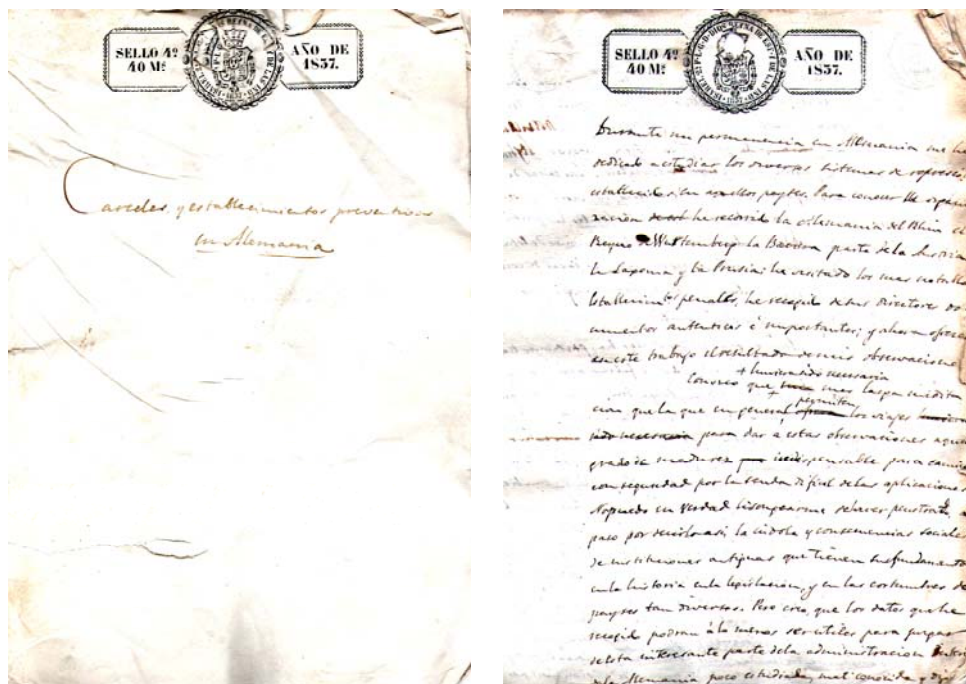 SELLO 4º
40 Mˢ
AÑO DE
1857.
Carceles, y establecimientos preventivos
en Alemania
SELLO 4º
40 Mˢ
AÑO DE
1857.
Durante mi permanencia en Alemania me he
dedicado a estudiar los diversos sistemas de
en aquellos payses. Para conocer
he recorrido la Alemania del Rhin el
Reyno de Wurtemberg la Baviera parte de la Austria
la Saxonia y la Prusia: he visitado los mas notables
establecimtos penales, he recogido de sus Directores do
cumentos autenticos é importantes; y ahora ofrezco
en este trabajo el resultado de mis observaciones
+ hubiera sido necesaria
Conozco que mas larga medita
+ permiten
cion que la que en general los viajes
sido necesaria para dar a estas observaciones aquel
grado de madurez indispensable para caminar
con seguridad por la senda dificil de las aplicaciones
No puedo en verdad lisongearme de haver penetrado
paso por decirlo asi, la indole y consecuencias sociales
de instituciones antiguas que tienen su fundamento
en la historia en la legislacion, y en las costumbres de
payses tan diversos. Pero creo, que los datos que he
recogido podran á lo menos ser utiles para juzgar
de esta interesante parte de la administracion
de la Alemania poco estudiada, mal conocida y